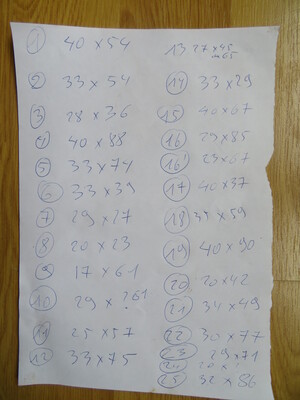 1 40 x 54
2 33 x 54
3 28 x 36
4 40 x 88
5 33 x 74
6 33 x 39
7 29 x 27
8 20 x 23
9 17 x 61
10 29 x ? 61
11 25 x 57
12 33 x 75
13 27 x 45
14 33 x 29
15 40 x 67
16 29 x 85
16! 29 x 67
17 40 x 37
18 34 x 59
19 40 x 90
20 20 x 42
21 34 x 49
22 30 x 77
23 29 x 71
25 32 x 86